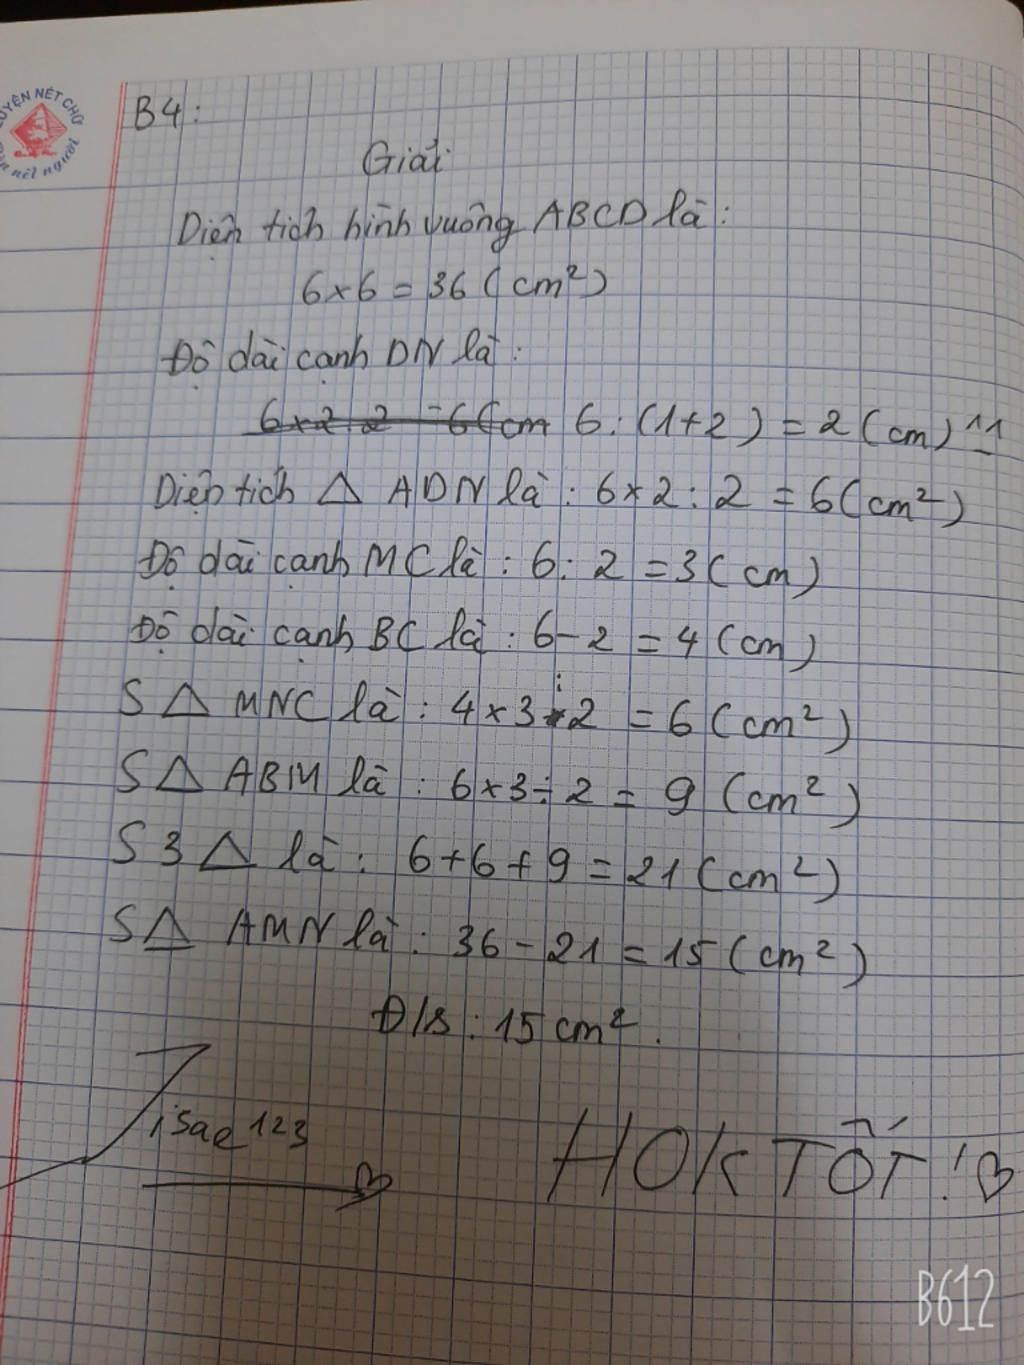 LUYỆN NẾT CHỮ
Rèn nết người
B4:
Giải
Diện tích hình vuông ABCD là:
6×6=36(cm²)
Độ dài cạnh DN là:
6×2 2 =6(cm 6:(1+2)=2(cm)
Diện tích △ ADN là: 6×2:2=6(cm²)
Độ dài cạnh MC là: 6:2=3(cm)
Độ dài cạnh BC là: 6-2=4(cm)
S△ MNC là: 4×3:2=6(cm²)
S△ ABM là: 6×3÷2=9(cm²)
S 3 △ là: 6+6+9=21(cm²)
S△ AMN là: 36-21=15(cm²)
Đ/s: 15 cm².
isae123
HOK TỐT!♡
B612